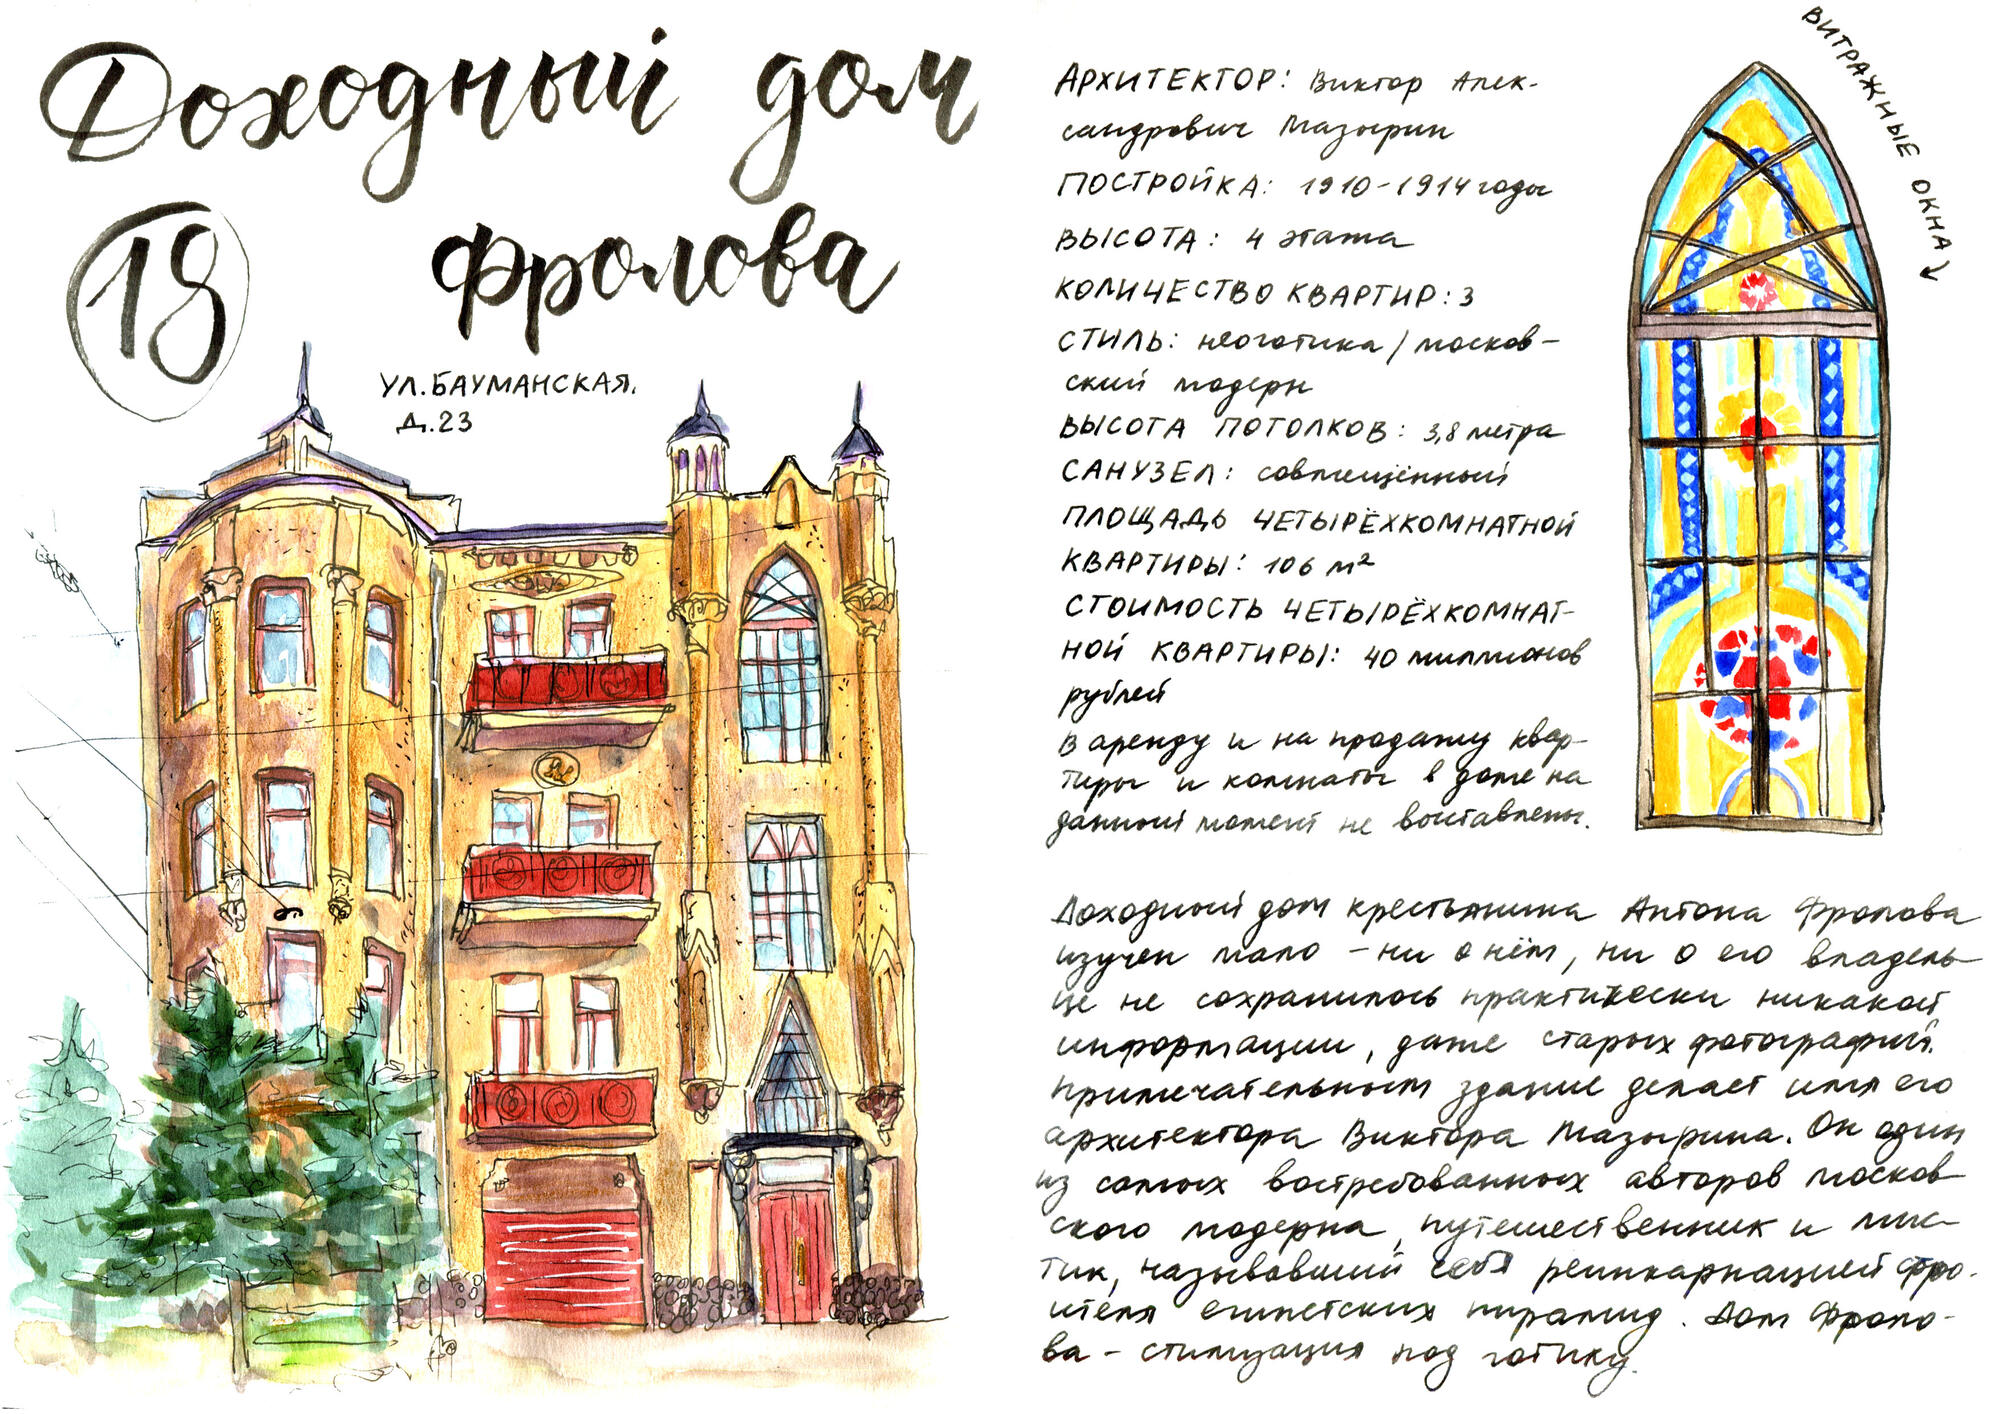 Доходный дом
18
Фролова
УЛ. БАУМАНСКАЯ.
Д. 23
ВИТРАЖНЫЕ ОКНА
АРХИТЕКТОР: Виктор Алек-
сандрович Мазырин
ПОСТРОЙКА: 1910-1914 годы
ВЫСОТА: 4 этажа
КОЛИЧЕСТВО КВАРТИР: 3
СТИЛЬ: неоготика / москов-
ский модерн
ВЫСОТА ПОТОЛКОВ: 3,8 метра
САНУЗЕЛ: совмещённый
ПЛОЩАДЬ ЧЕТЫРЁХКОМНАТНОЙ
КВАРТИРЫ: 106 м²
СТОИМОСТЬ ЧЕТЫРЁХКОМНАТ-
НОЙ КВАРТИРЫ: 40 миллионов
рублей
В аренду и на продажу квар-
тиры и комнаты в доме на
данный момент не выставлены.
Доходный дом крестьянина Антона Фролова
изучен мало - ни о нём, ни о его владель-
це не сохранилось практически никакой
информации, даже старых фотографий.
Примечательным здание делает имя его
архитектора Виктора Мазырина. Он один
из самых востребованных авторов москов-
ского модерна, путешественник и мис-
тик, называвший себя реинкарнацией стро-
ителя египетских пирамид. Дом Фроло-
ва - стилизация под готику.